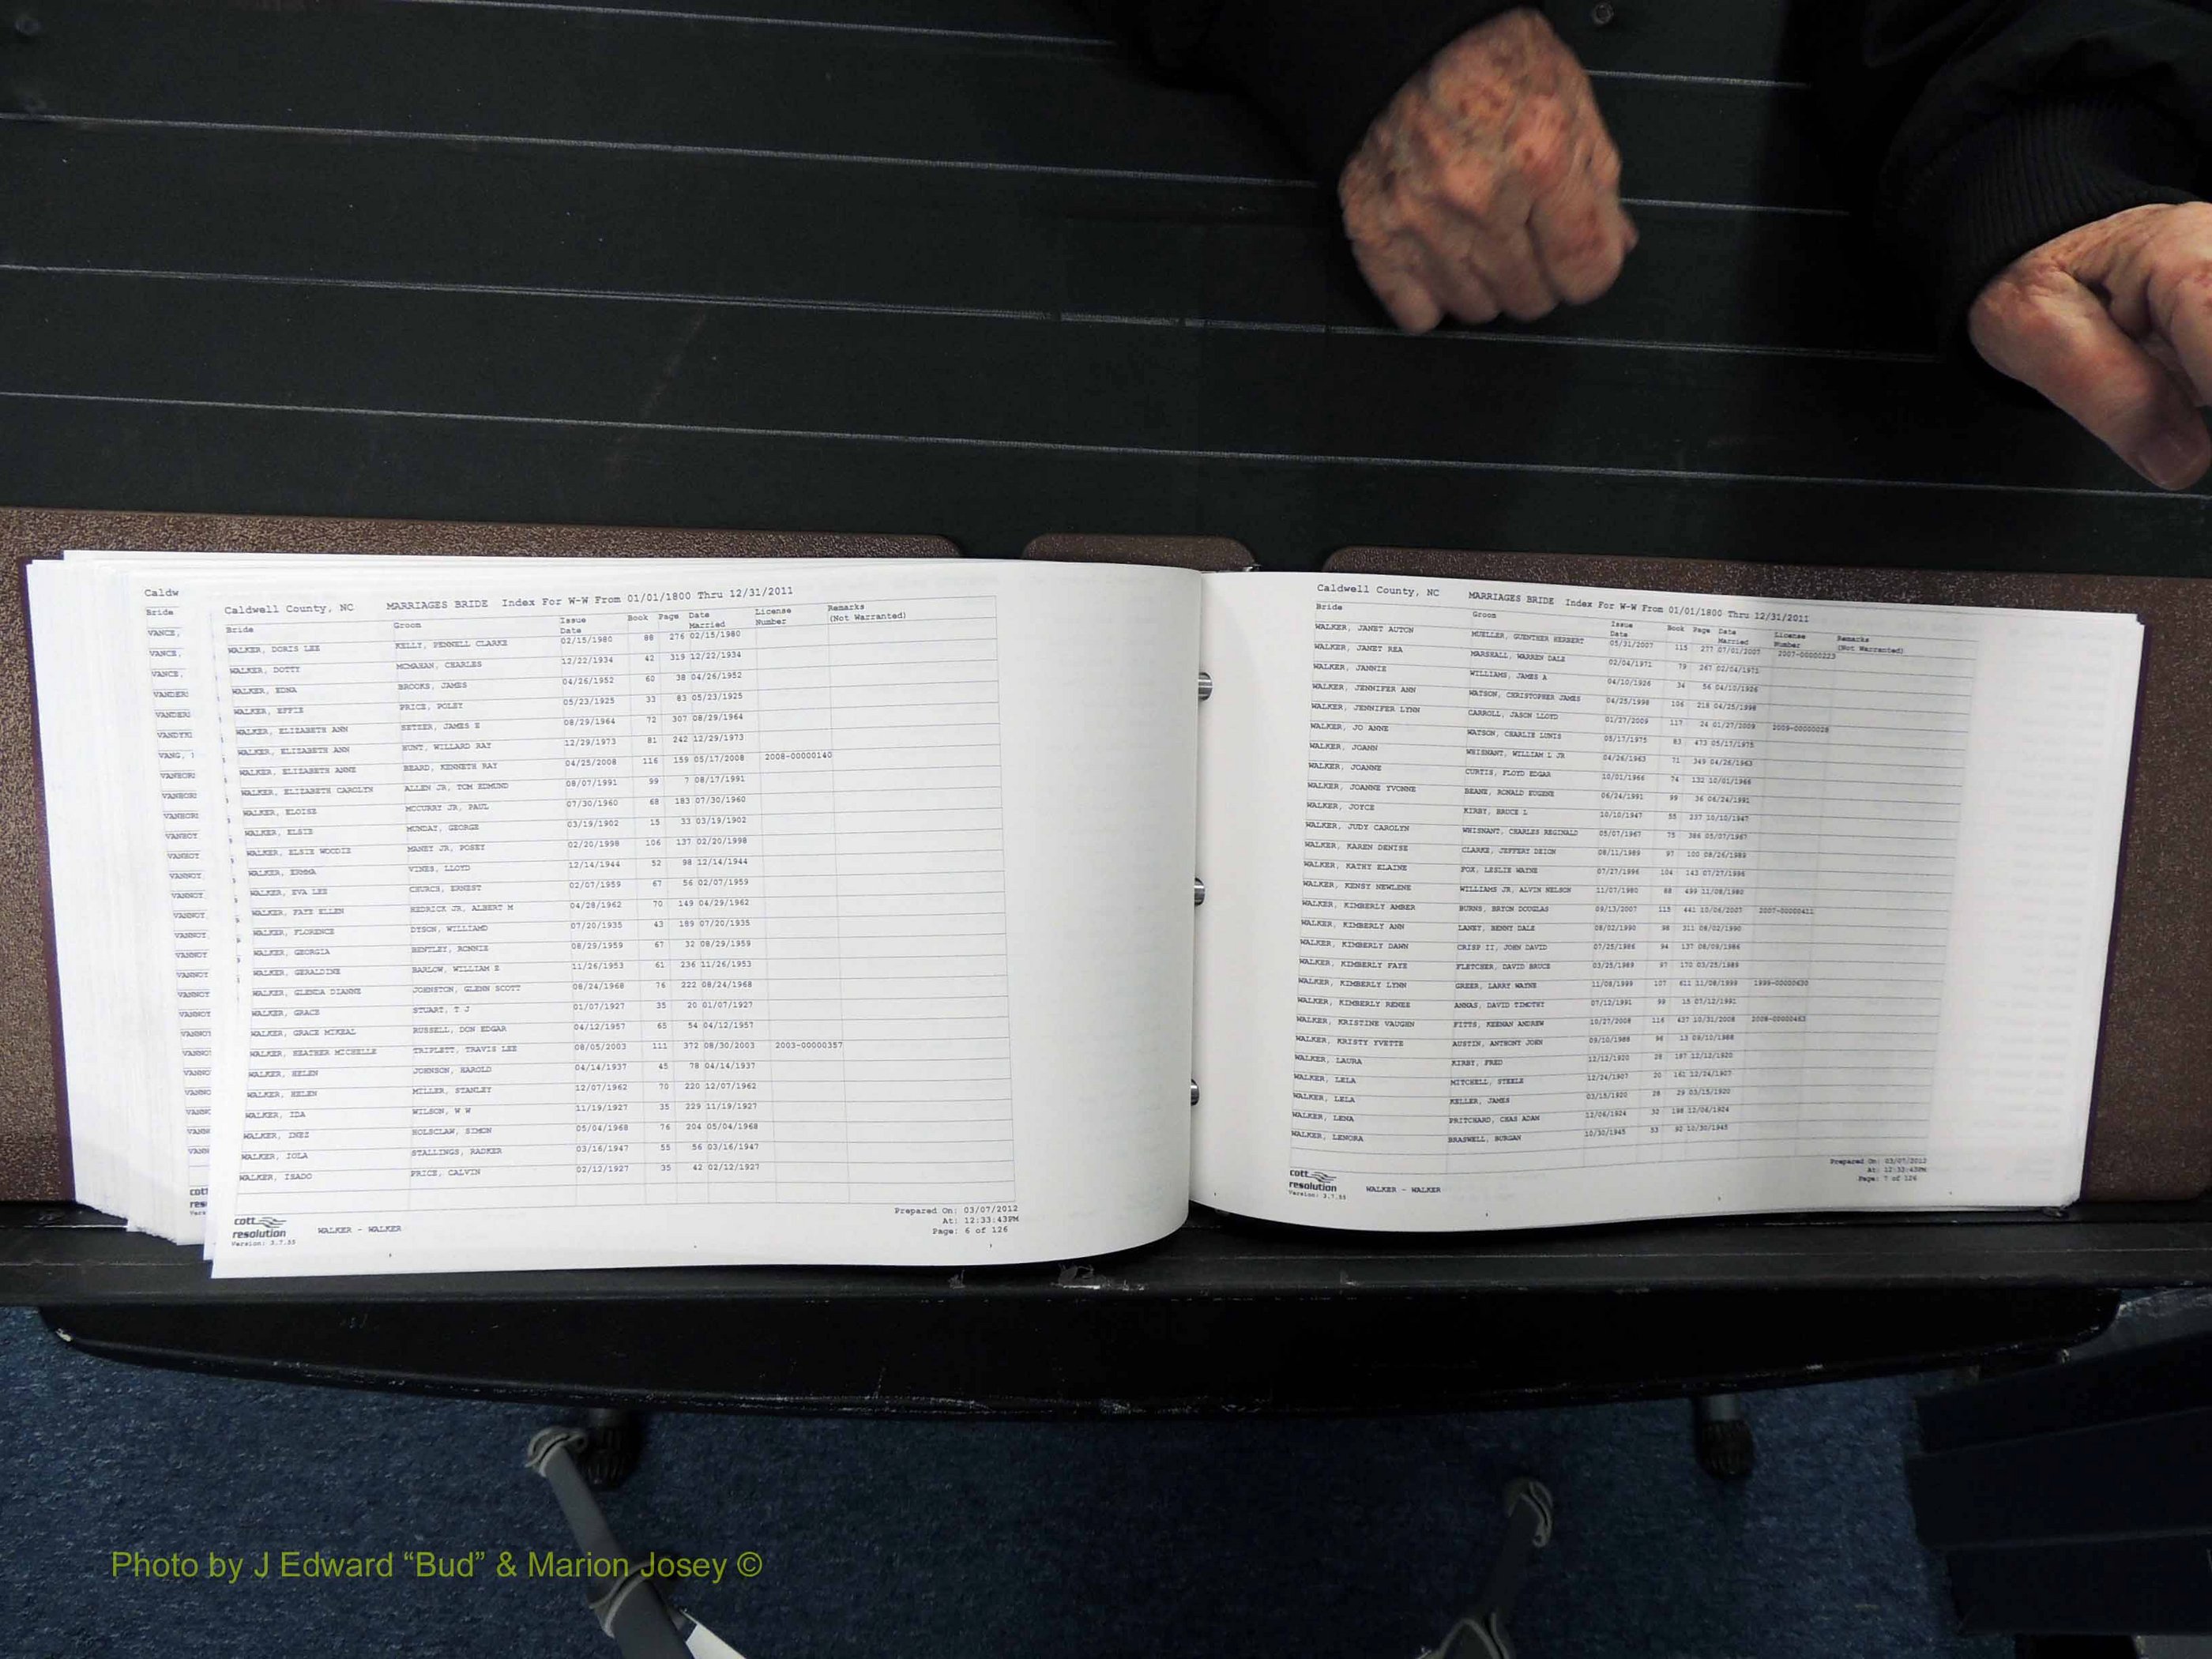 Caldw
Bride
VANCE,
VANCE,
VANCE,
VANDER
VANDER
VANDYK
VANG,
VANHOR
VANHOR
VANHOR
VANHOY
VANHOY
VANNOY
VANNOY
VANNOY
VANNOY
VANNOY
VANNOY
VANNOY
VANNOY
VANNOY
VANNO
VANNO
VANNO
VANN
VANN
Caldwell County, NC MARRIAGES BRIDE Index For W-W From 01/01/1800 Thru 12/31/2011
Bride Groom Issue Date Book Page Date Married License Number Remarks (Not Warranted)
WALKER, DORIS LEE KELLY, PENNELL CLARKE 02/15/1980 88 276 02/15/1980
WALKER, DOTTY MCMAHAN, CHARLES 12/22/1934 42 319 12/22/1934
WALKER, EDNA BROOKS, JAMES 04/26/1952 60 38 04/26/1952
WALKER, EFFIE PRICE, POLEY 05/23/1925 33 83 05/23/1925
WALKER, ELIZABETH ANN SETZER, JAMES E 08/29/1964 72 307 08/29/1964
WALKER, ELIZABETH ANN HUNT, WILLARD RAY 12/29/1973 81 242 12/29/1973
WALKER, ELIZABETH ANNE BEARD, KENNETH RAY 04/25/2008 116 159 05/17/2008 2008-00000140
WALKER, ELIZABETH CAROLYN ALLEN JR, TOM EDMUND 08/07/1991 99 7 08/17/1991
WALKER, ELOISE MCCURRY JR, PAUL 07/30/1960 68 183 07/30/1960
WALKER, ELSIE MUNDAY, GEORGE 03/19/1902 15 33 03/19/1902
WALKER, ELSIE WOODIE MANEY JR, POSEY 02/20/1998 106 137 02/20/1998
WALKER, ERMMA VINES, LLOYD 12/14/1944 52 98 12/14/1944
WALKER, EVA LEE CHURCH, ERNEST 02/07/1959 67 56 02/07/1959
WALKER, FAYE ELLEN HEDRICK JR, ALBERT M 04/28/1962 70 149 04/29/1962
WALKER, FLORENCE DYSON, WILLIAMD 07/20/1935 43 189 07/20/1935
WALKER, GEORGIA BENTLEY, RONNIE 08/29/1959 67 32 08/29/1959
WALKER, GERALDINE BARLOW, WILLIAM E 11/26/1953 61 236 11/26/1953
WALKER, GLENDA DIANNE JOHNSTON, GLENN SCOTT 08/24/1968 76 222 08/24/1968
WALKER, GRACE STUART, T J 01/07/1927 35 20 01/07/1927
WALKER, GRACE MIKEAL RUSSELL, DON EDGAR 04/12/1957 65 54 04/12/1957
WALKER, HEATHER MICHELLE TRIPLETT, TRAVIS LEE 08/05/2003 111 372 08/30/2003 2003-00000357
WALKER, HELEN JOHNSON, HAROLD 04/14/1937 45 78 04/14/1937
WALKER, HELEN MILLER, STANLEY 12/07/1962 70 220 12/07/1962
WALKER, IDA WILSON, W W 11/19/1927 35 229 11/19/1927
WALKER, INEZ HOLSCLAW, SIMON 05/04/1968 76 204 05/04/1968
WALKER, IOLA STALLINGS, RADKER 03/16/1947 55 56 03/16/1947
WALKER, ISADO PRICE, CALVIN 02/12/1927 35 42 02/12/1927
cott resolution Version: 3.7.55 WALKER - WALKER
Prepared On: 03/07/2012
At: 12:33:43PM
Page: 6 of 126
Caldwell County, NC MARRIAGES BRIDE Index For W-W From 01/01/1800 Thru 12/31/2011
Bride Groom Issue Date Book Page Date Married License Number Remarks (Not Warranted)
WALKER, JANET AUTON MUELLER, GUENTHER HERBERT 05/31/2007 115 277 07/01/2007 2007-00000223
WALKER, JANET REA MARSHALL, WARREN DALE 02/04/1971 79 267 02/04/1971
WALKER, JANNIE WILLIAMS, JAMES A 04/10/1926 34 56 04/10/1926
WALKER, JENNIFER ANN WATSON, CHRISTOPHER JAMES 04/25/1998 106 218 04/25/1998
WALKER, JENNIFER LYNN CARROLL, JASON LLOYD 01/27/2009 117 24 01/27/2009 2009-00000028
WALKER, JO ANNE WATSON, CHARLIE LUNIS 05/17/1975 83 473 05/17/1975
WALKER, JOANN WHISNANT, WILLIAM L JR 04/26/1963 71 349 04/26/1963
WALKER, JOANNE CURTIS, FLOYD EDGAR 10/01/1966 74 132 10/01/1966
WALKER, JOANNE YVONNE BEANE, RONALD EUGENE 06/24/1991 99 36 06/24/1991
WALKER, JOYCE KIRBY, BRUCE L 10/10/1947 55 237 10/10/1947
WALKER, JUDY CAROLYN WHISNANT, CHARLES REGINALD 05/07/1967 75 386 05/07/1967
WALKER, KAREN DENISE CLARKE, JEFFERY DEION 08/11/1989 97 100 08/26/1989
WALKER, KATHY ELAINE FOX, LESLIE WAYNE 07/27/1996 104 143 07/27/1996
WALKER, KENSY NEWLENE WILLIAMS JR, ALVIN NELSON 11/07/1980 88 499 11/08/1980
WALKER, KIMBERLY AMBER BURNS, BRYON DOUGLAS 09/13/2007 115 441 10/06/2007 2007-00000411
WALKER, KIMBERLY ANN LANEY, BENNY DALE 08/02/1990 98 311 08/02/1990
WALKER, KIMBERLY DAWN CRISP II, JOHN DAVID 07/25/1986 94 137 08/09/1986
WALKER, KIMBERLY FAYE FLETCHER, DAVID BRUCE 03/25/1989 97 170 03/25/1989
WALKER, KIMBERLY LYNN GREER, LARRY WAYNE 11/08/1999 107 611 11/08/1999 1999-00000630
WALKER, KIMBERLY RENEE ANNAS, DAVID TIMOTHY 07/12/1991 99 15 07/12/1991
WALKER, KRISTINE VAUGHN FITTS, KEENAN ANDREW 10/27/2008 116 437 10/31/2008 2008-00000463
WALKER, KRISTY YVETTE AUSTIN, ANTHONY JOHN 09/10/1988 96 13 09/10/1988
WALKER, LAURA KIRBY, FRED 12/12/1920 28 187 12/12/1920
WALKER, LELA MITCHELL, STEELE 12/24/1907 20 161 12/24/1907
WALKER, LELA KELLER, JAMES 03/15/1920 28 29 03/15/1920
WALKER, LENA PRITCHARD, CHAS ADAM 12/06/1924 32 198 12/06/1924
WALKER, LENORA BRASWELL, BURGAN 10/30/1945 53 92 10/30/1945
cott resolution Version: 3.7.55 WALKER - WALKER
Prepared On: 03/07/2012
At: 12:33:43PM
Page: 7 of 126
cott
res
Vers
Photo by J Edward “Bud” & Marion Josey ©